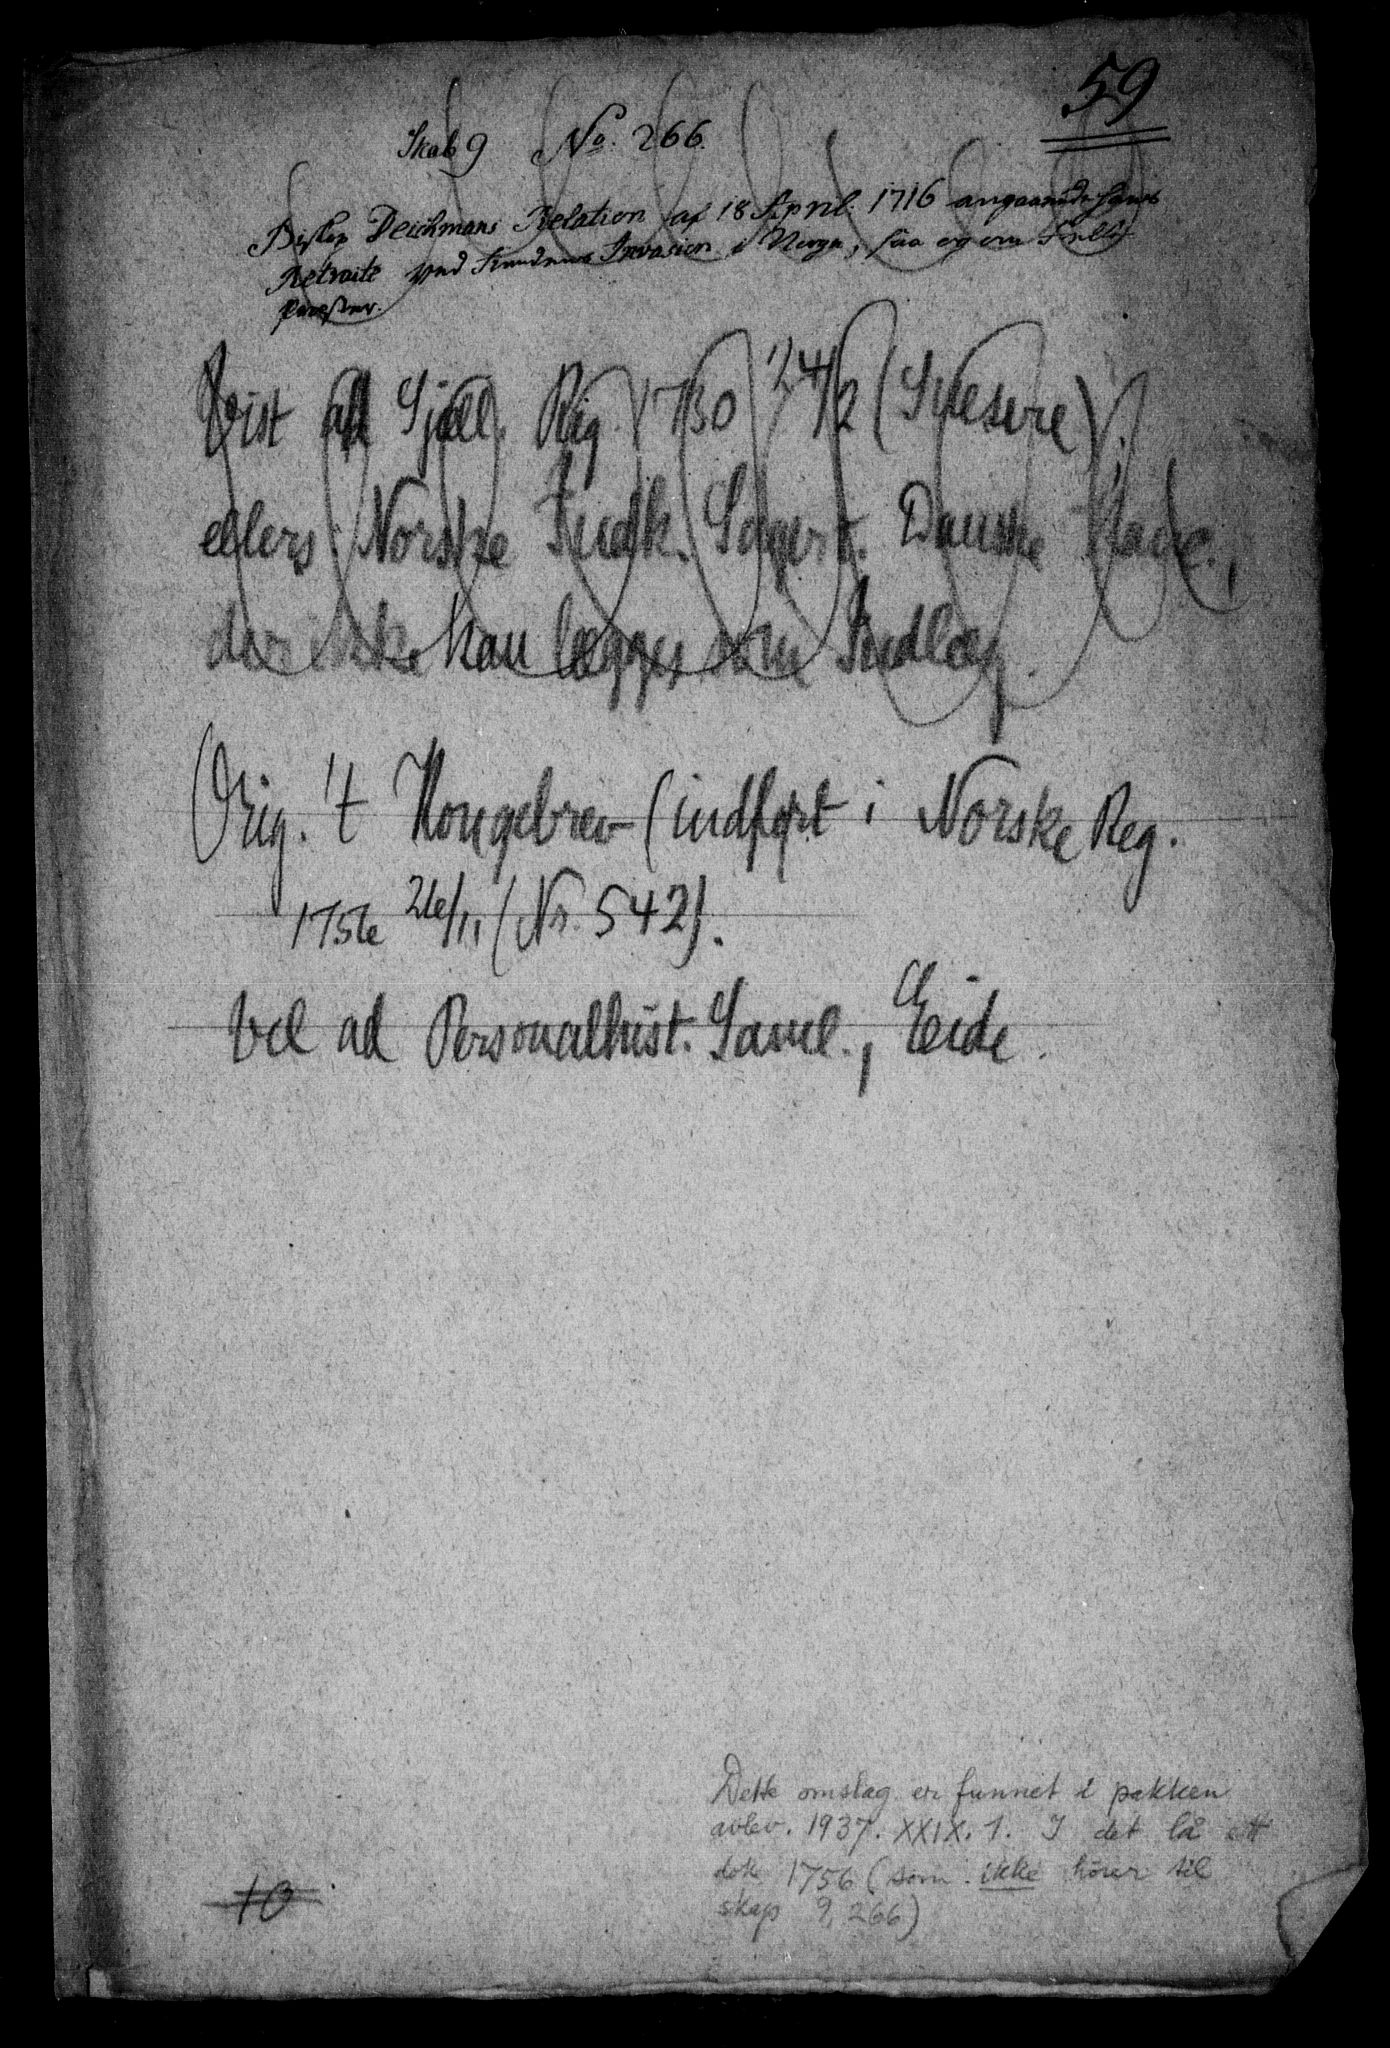 59
Skab 9 No. 266.
Biskop Deichmans Relation af 18 April 1716 angaaende hans
Retraite ved Fiendens Invasion i Norge, saa og om
Præster.
Vist ad Sjæll. Reg. 1730 24/2
ellers: Norske Indk. Sager t. Danske Kanc.,
der ikke kan lægges som Indlæg.
Orig. t Kongebrev (indført i Norske Reg.
1756 26/11 (Nr. 542).
Vel ad Personalhist. Saml., Eeide.
Dette omslag er funnet i pakken
avlev. 1937. XXIX. 1. I det lå ett
dok 1756 (som ikke hörer til
skap 9, 266)
10